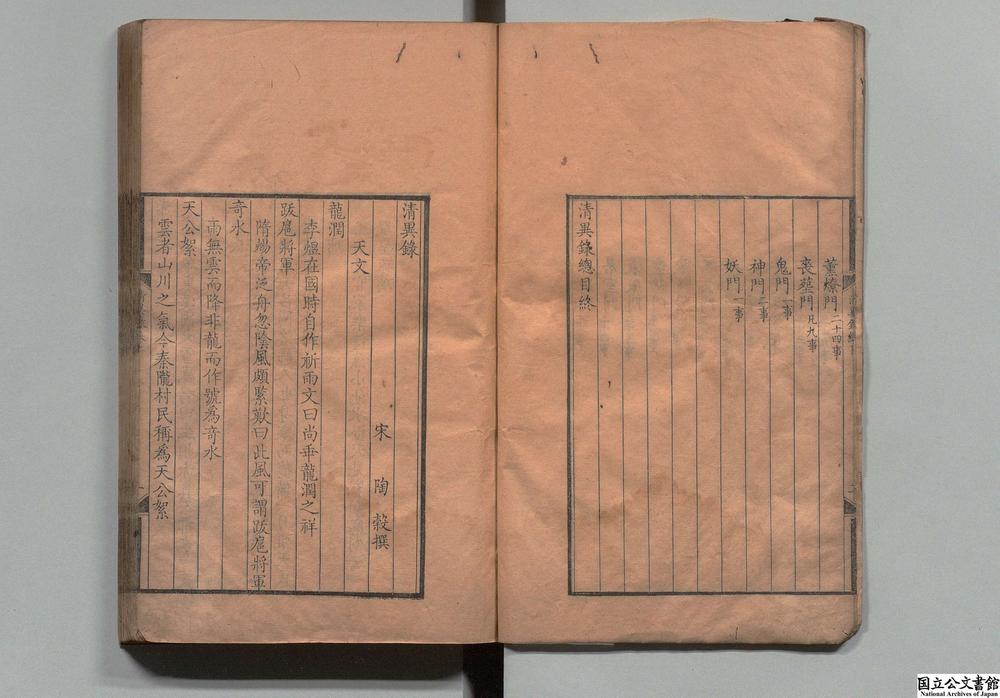 薫燎門二十四事
喪塟門凡九事
鬼門一事
神門二事
妖門一事
清異錄總目終
清異錄
宋　陶　穀撰
天文
龍潤
李煜在國時自作祈雨文曰尚垂龍潤之祥
跋扈將軍
隋煬帝泛舟忽陰風頗緊歎曰此風可謂跋扈將軍
竒水
雨無雲而降非龍而作號為竒水
天公絮
雲者山川之氣今秦隴村民稱為天公絮
国立公文書館
National Archives of Japan